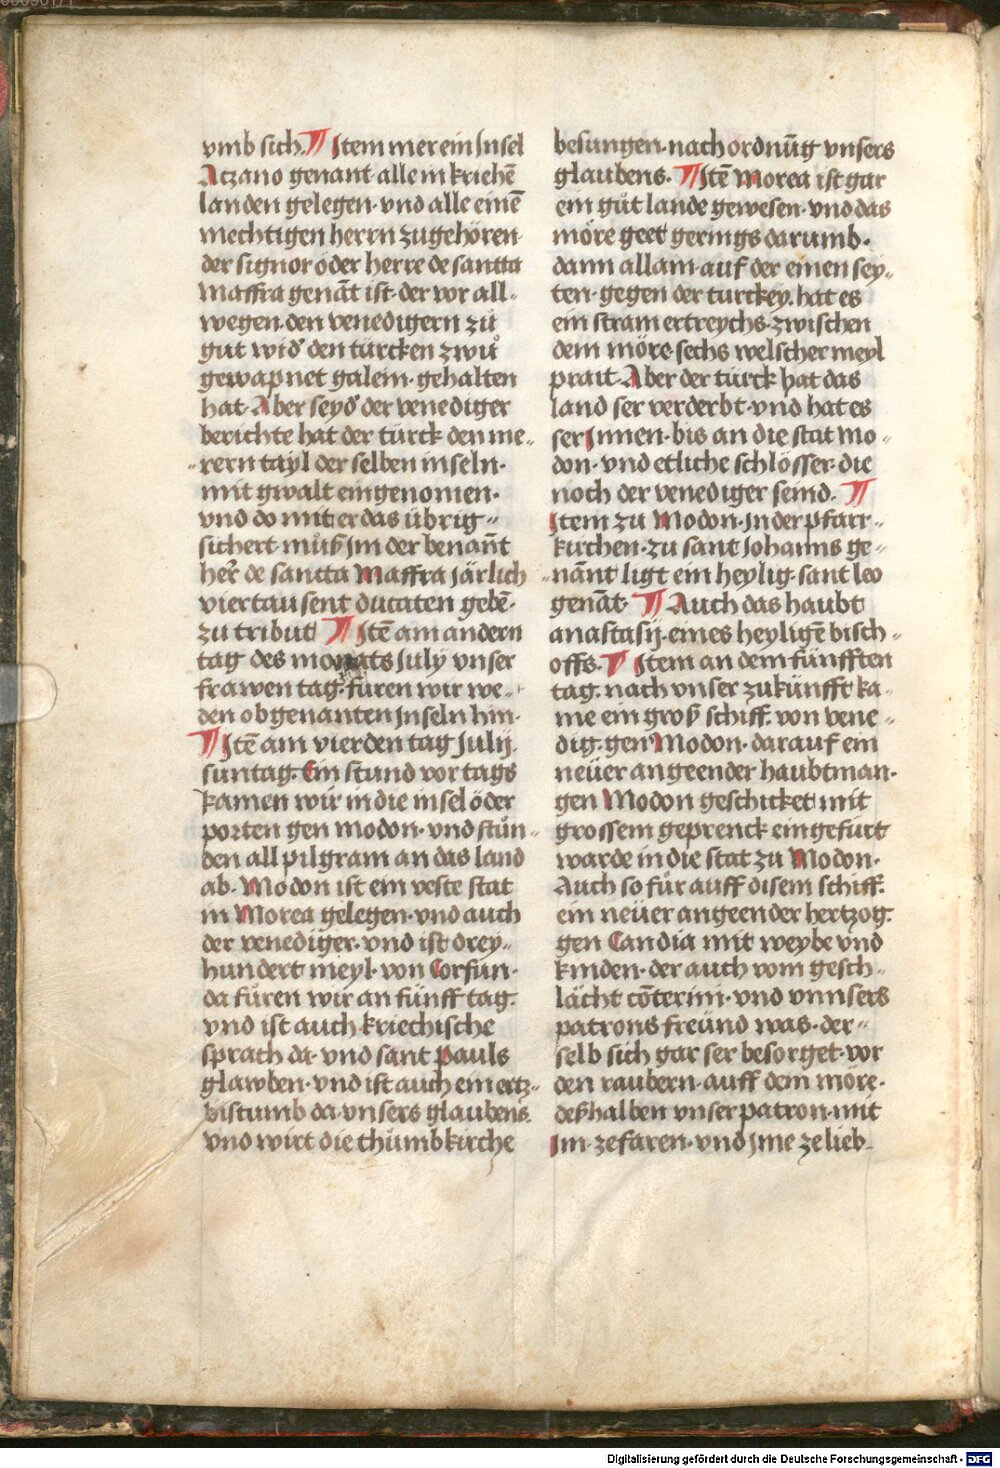 vmb sich. ¶ Item mer ein Insel
Atzano genant alle in kriehē
landen gelegen· vnd alle einē
mechtigen herrn zugehören·
der signor oder herre de santta
Maffra genāt ist· der vor all-
wegen· den venedigern zů
gůt wid' den türcken zwů
gewapnet galein· gehalten
hat· Aber seyd' der venediger
berichte hat der türck den me-
rern tayl der selben inseln·
mit gwalt eingenomen·
vnd do mit er das übrig-
sichert můß im der benant̄
her̄ de santta Maffra järlich
viertausent ducaten gebē·
zu tribut ¶ Itē am andern
tag des monats July vnser
frawen tag· fůren wir we-
den obgenanten Inseln hin·
¶ Itē am vierden tag Julij·
suntag· Ein stund vor tags
kamen wir in die insel oder
porten gen modon· vnd stůn-
den all pilgram an das land
ab· Modon ist ein veste stat
in Morea gelegen· vnd auch
der venediger· vnd ist drey-
hundert meyl· von Corfun·
da fůren wir an fünff tag·
vnd ist auch kriechische
sprach da· vnd sant pauls
glawben· vnd ist auch ein ertz-
bistumb da· vnsers glaubens·
vnd wirt die thůmbkirche
besungen· nach ordnūg vnsers
glaubens· ¶ Itē Morea ist gar
ein gůt lande gewesen· vnd das
möre geet gerings darumb·
dann allain· auf der einen sey-
ten· gegen der turckey· hat es
ein stram ertreychs· zwischen
dem möre· sechs welscher meyl
prait· Aber der türck hat das
land ser verderbt· vnd hat es
ser Innen· bis an die stat mo-
don· vnd etliche schlösser· die
noch der venediger seind· ¶
Item zu Modon· In der pfarr-
kirchen· zu sant Johanns ge-
nānt ligt ein heylig· sant leo
genāt· ¶ Auch das haubt
anastasij· eines heyligē bisch-
offs· ¶ Item an dem fünfften
tag· nach vnser zukünfft ka-
me ein groß schiff· von vene-
dig· gen Modon· darauf ein
neüer angeender haubtman·
gen Modon geschicket mit
grossem geprenck eingefürt
warde in die stat zu Modon·
Auch so fůr auff disem schiff·
ein neüer angeender hertzog·
gen Candia mit weybe vnd
kinden· der auch vom gesch-
lächt cōterini· vnd vnnsers
patrons freünd was· der-
selb sich gar ser besorget· vor
den raubern· auff dem möre·
deßhalben vnser patron· mit
Im· zefaren· vnd Ime ze lieb
Digitalisierung gefördert durch die Deutsche Forschungsgemeinschaft - DFG